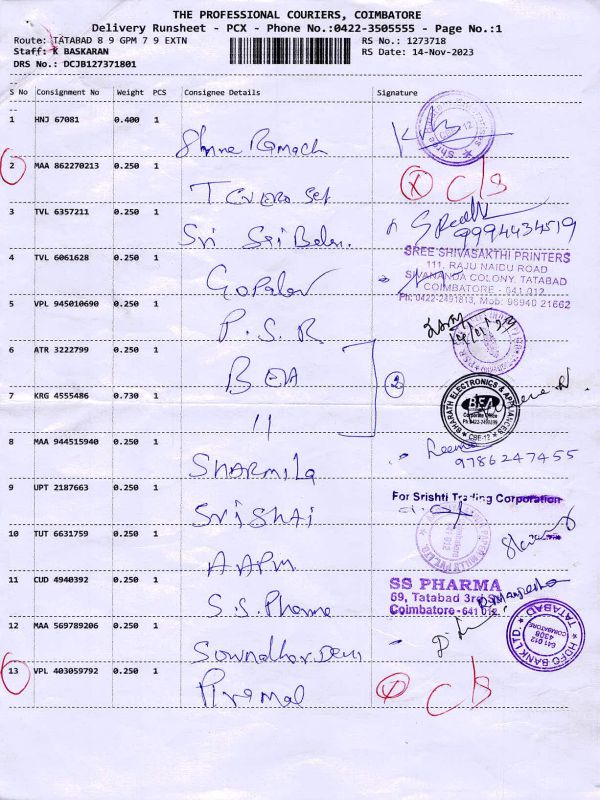 THE PROFESSIONAL COURIERS, COIMBATORE
Delivery Runsheet - PCX - Phone No.:0422-3505555 - Page No.:1
Route: TATABAD 8 9 GPM 7 9 EXTN
RS No.: 1273718
Staff: K BASKARAN
RS Date: 14-Nov-2023
DRS No.: DCJB127371801
S No Consignment No Weight PCS Consignee Details Signature
1 HNJ 67081 0.400 1
2 MAA 862270213 0.250 1
C/S
3 TVL 6357211 0.250 1 Sri Sri
9994434519
4 TVL 6061628 0.250 1 Gopalov
SREE SHIVASAKTHI PRINTERS
111, RAJU NAIDU ROAD
SIVANANDA COLONY, TATABAD
COIMBATORE - 641 012
Ph: 0422-2491813, Mob: 98940 21662
5 VPL 945010690 0.250 1 P.S.R
6 ATR 3222799 0.250 1 BEA
2
7 KRG 4555486 0.730 1 11
BHARATH ELECTRONICS & APPLIANCES
BEA
Corporate Office
CBE-12
8 MAA 944515940 0.250 1 Sharmila
9786247455
9 UPT 2187663 0.250 1 Srishti
For Srishti Trading Corporation
10 TUT 6631759 0.250 1 AAPM
11 CUD 4940392 0.250 1 S.S. Pharma
SS PHARMA
59, Tatabad 3rd
Coimbatore-641 012.
12 MAA 569789206 0.250 1
HDFC BANK LTD. TATABAD
COIMBATORE
641 012
13 VPL 403059792 0.250 1 Piramal
C/S